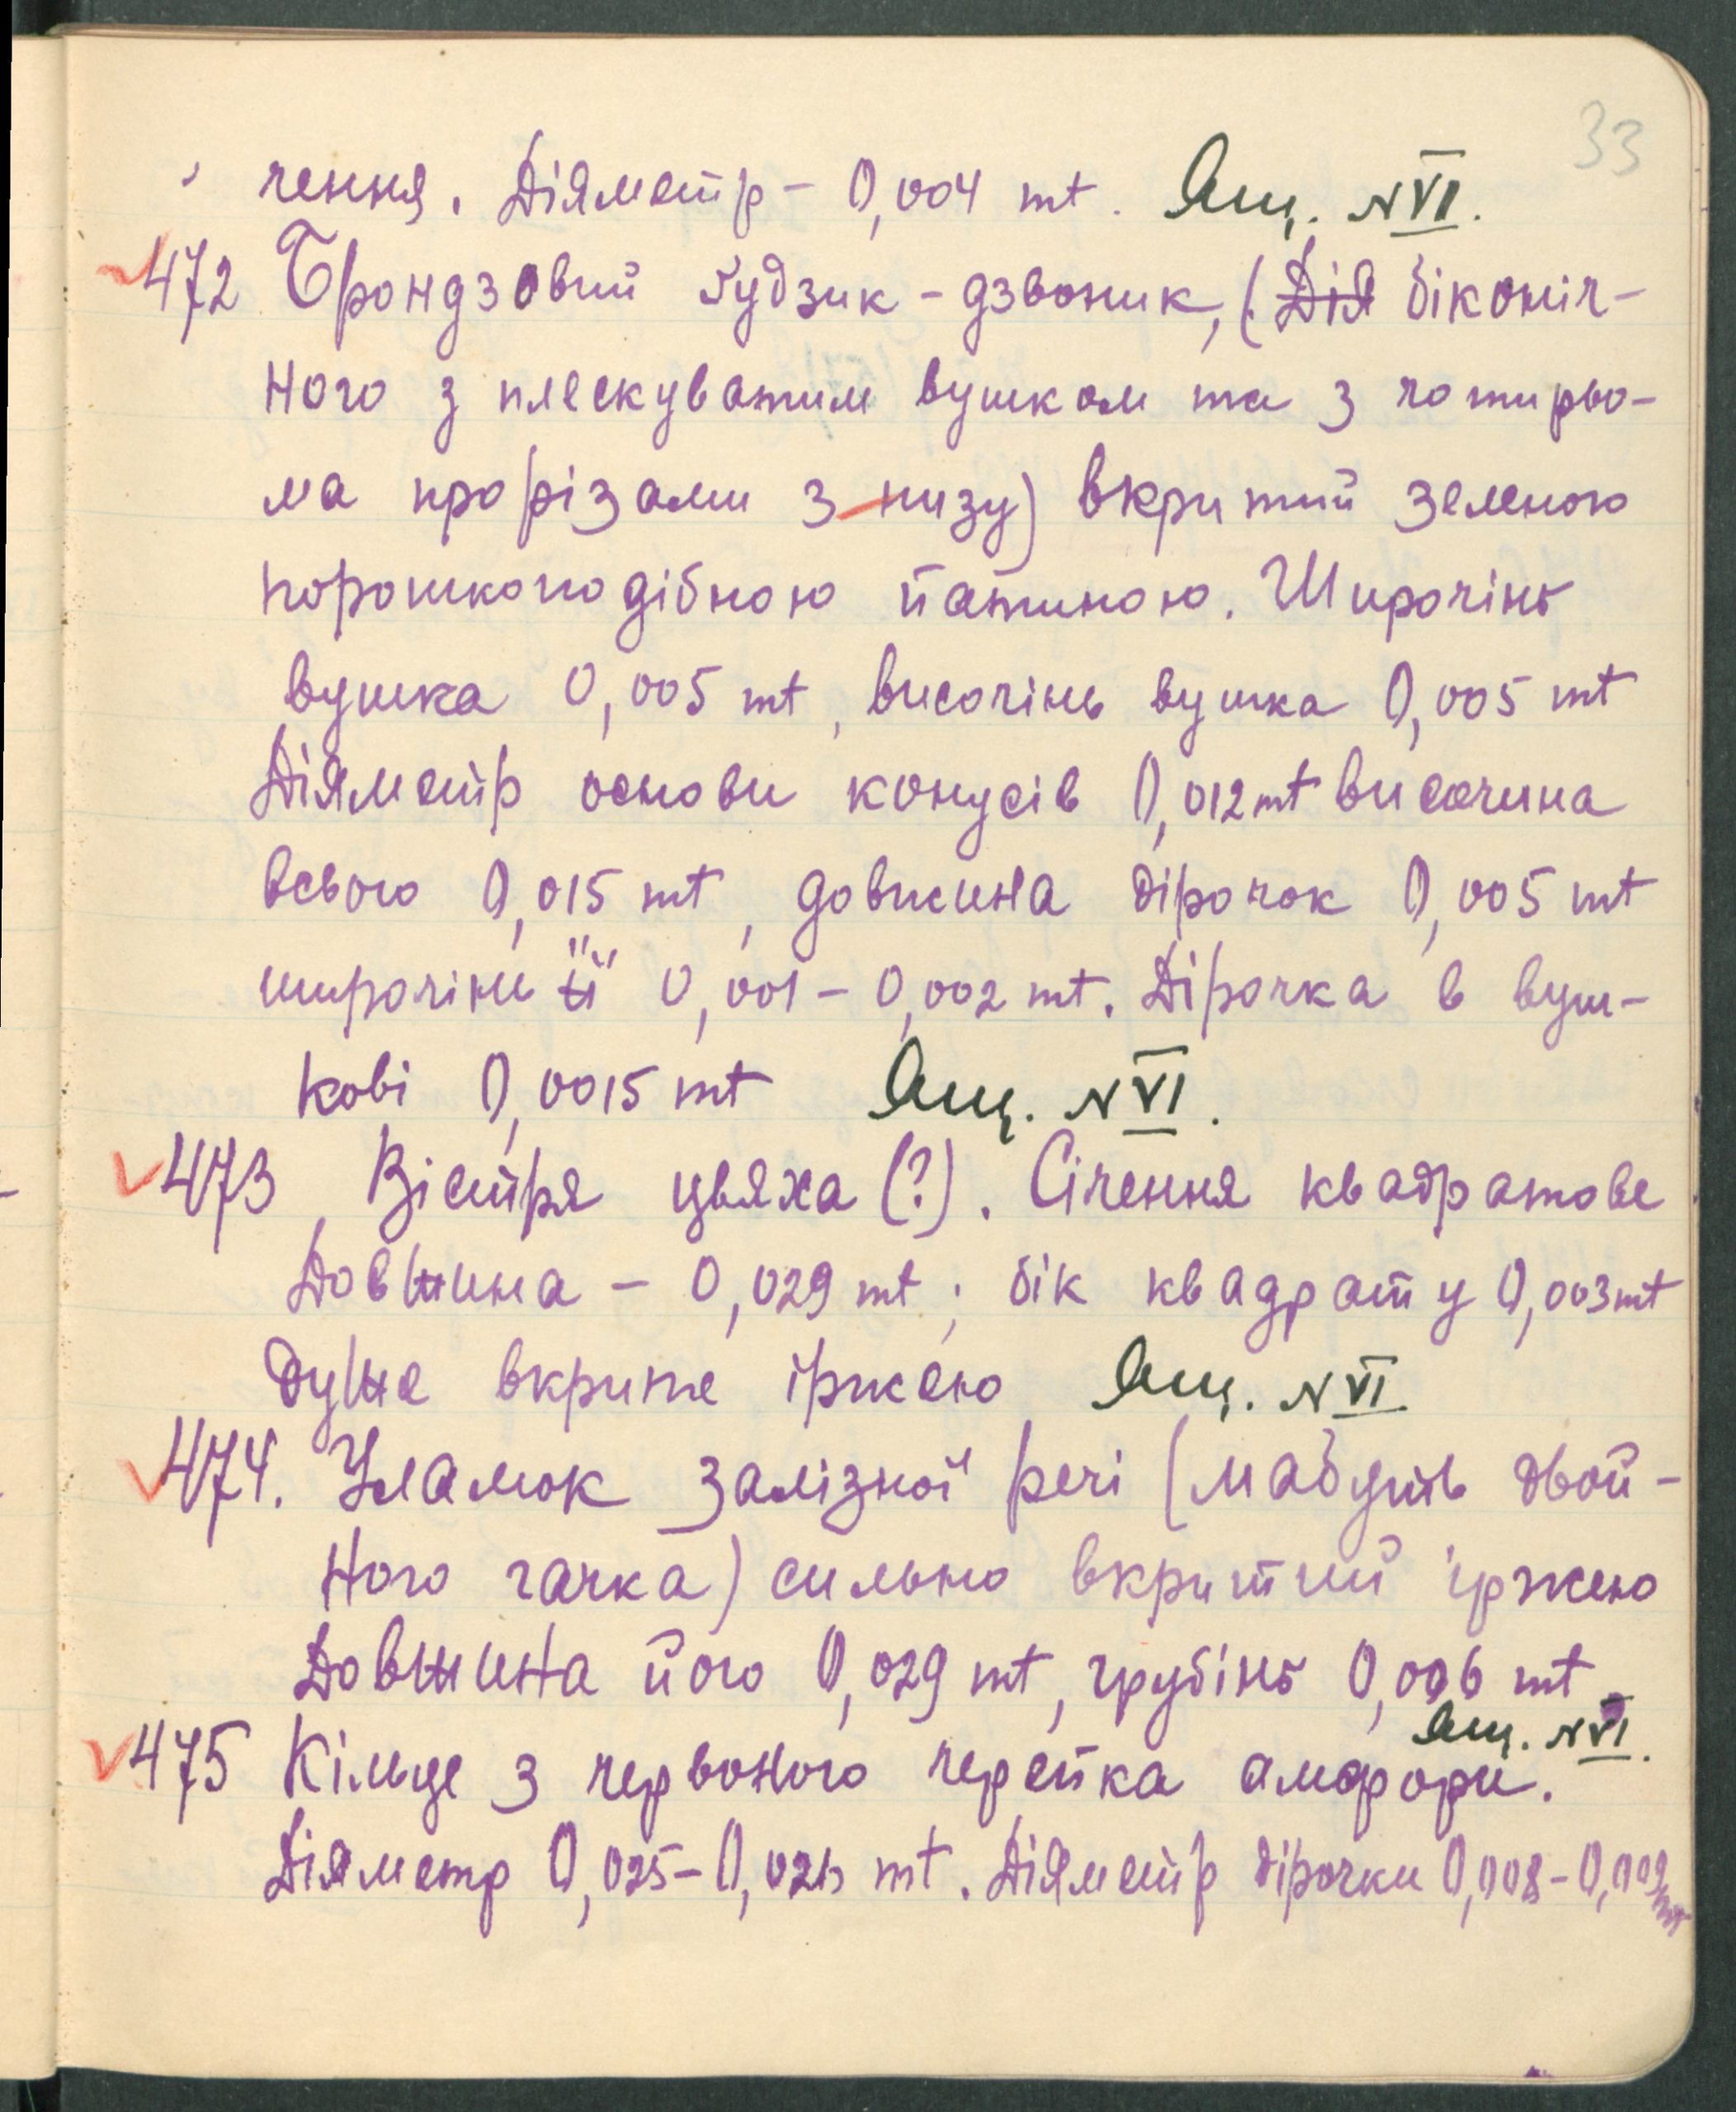 33
чення. Діяметр - 0,004 mt. Ящ. N VI.
472 Брондзовий ґудзик - дзвоник, (Дія біконіч-
ного з плескуватим вушком та з чотирьо-
ма прорізами з низу) вкритий зеленою
порошкоподібною патиною. Широчінь
вушка 0,005 mt, височінь вушка 0,005 mt
Діяметр основи конусів 0,012 mt височина
всього 0,015 mt, довжина дірочок 0,005 mt
широчінь " 0,001 - 0,002 mt. Дірочка в вуш-
кові 0,0015 mt Ящ. N VI.
473 Вістря цвяха (?). Січення квадратове
Довжина - 0,029 mt; бік квадрату 0,003 mt
Дуже вкрите іржею Ящ. N VI.
474. Уламок залізної речі (мабуть двой-
ного гачка) сильно вкритий іржею
Довжина його 0,029 mt, грубінь 0,006 mt
Ящ. N VI.
475 Кільце з червоного черепка амфори.
Діяметр 0,025 - mt. Діяметр дірочки 0,008 - 0,009 mt